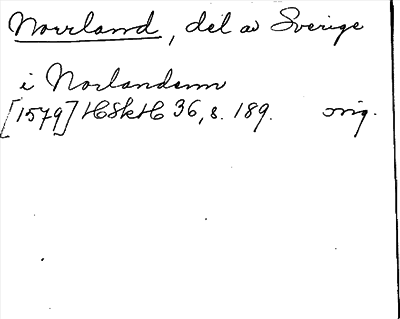 Norrland, del av Sverige
i Norlandenn
[1579] HSkH 36, s. 189. orig.